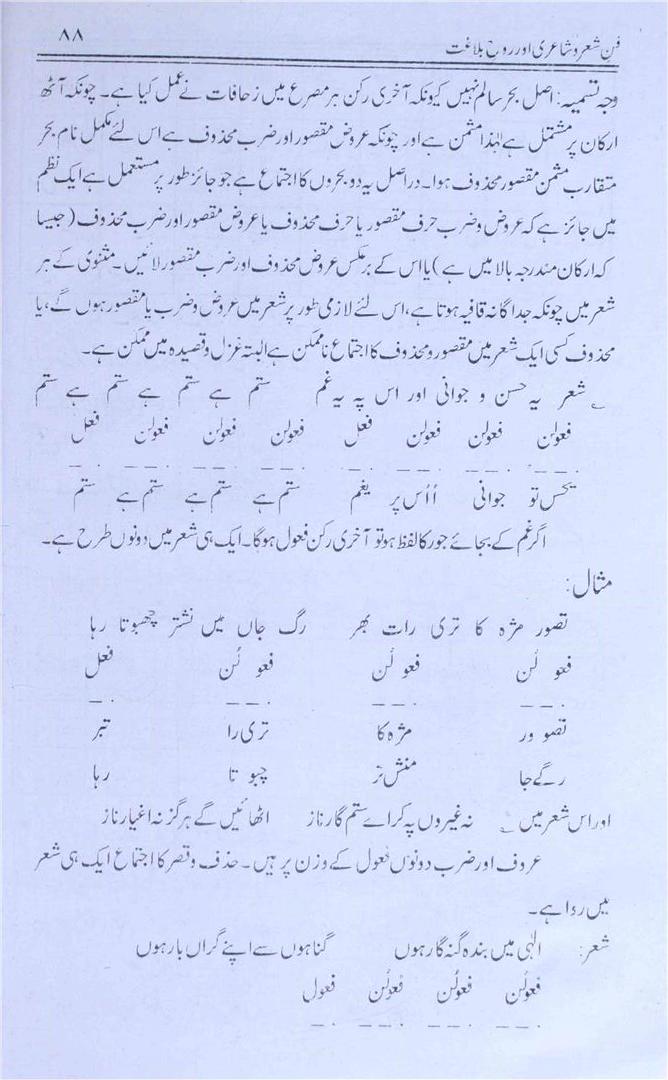 فن شعر و شاعری اور روح بلاغت ۸۸
وجہ تسمیہ: اصل بحر سالم نہیں کیونکہ آخری رکن ہر مصرع میں زحافات نے عمل کیا ہے۔ چونکہ آٹھ
ارکان پر مشتمل ہے لہٰذا مثمن ہے اور چونکہ عروض مقصور اور ضرب محذوف ہے اس لئے مکمل نام بحر
متقارب مثمن مقصور محذوف ہوا۔ دراصل یہ دو بحروں کا اجتماع ہے جو جائز طور پر مستعمل ہے ایک نظم
میں جائز ہے کہ عروض و ضرب حرف مقصور یا حرف محذوف یا عروض مقصور اور ضرب محذوف (جیسا
کہ ارکان مندرجہ بالا میں ہے) یا اس کے برعکس عروض محذوف اور ضرب مقصور لائیں۔ مثنوی کے ہر
شعر میں چونکہ جداگانہ قافیہ ہوتا ہے، اس لئے لازمی طور پر شعر میں عروض و ضرب یا مقصور ہوں گے، یا
محذوف کسی ایک شعر میں مقصور و محذوف کا اجتماع ناممکن ہے البتہ غزل و قصیدہ میں ممکن ہے۔
؎ شعر یہ حسن و جوانی اور اس پہ یہ غم ستم ہے ستم ہے ستم ہے ستم
فعولن فعولن فعولن فعل فعولن فعولن فعولن فعل
یحس تو جوانی اُاُس پر یغم ستم ہے ستم ہے ستم ہے ستم
اگر غم کے بجائے جور کا لفظ ہو تو آخری رکن فعول ہوگا۔ ایک ہی شعر میں دونوں طرح ہے۔
مثال:
تصور مژہ کا تری رات بھر رگ جاں میں نشتر چھبوتا رہا
فعو لُن فعو لُن فعو لُن فعل
تصوو ور مژہ کا تری را تبر
رگے جا منش تر چبو تا رہا
اور اس شعر میں ؎ نہ غیروں پہ کر اے ستم گار ناز اٹھائیں گے ہرگز نہ اغیار ناز
عروف اور ضرب دونوں فعول کے وزن پر ہیں۔ حذف و قصر کا اجتماع ایک ہی شعر
میں روا ہے۔
شعر: الٰہی میں بندہ گنہ گار ہوں گناہوں سے اپنے گراں بار ہوں
فعولُن فعولُن فعولُن فعول